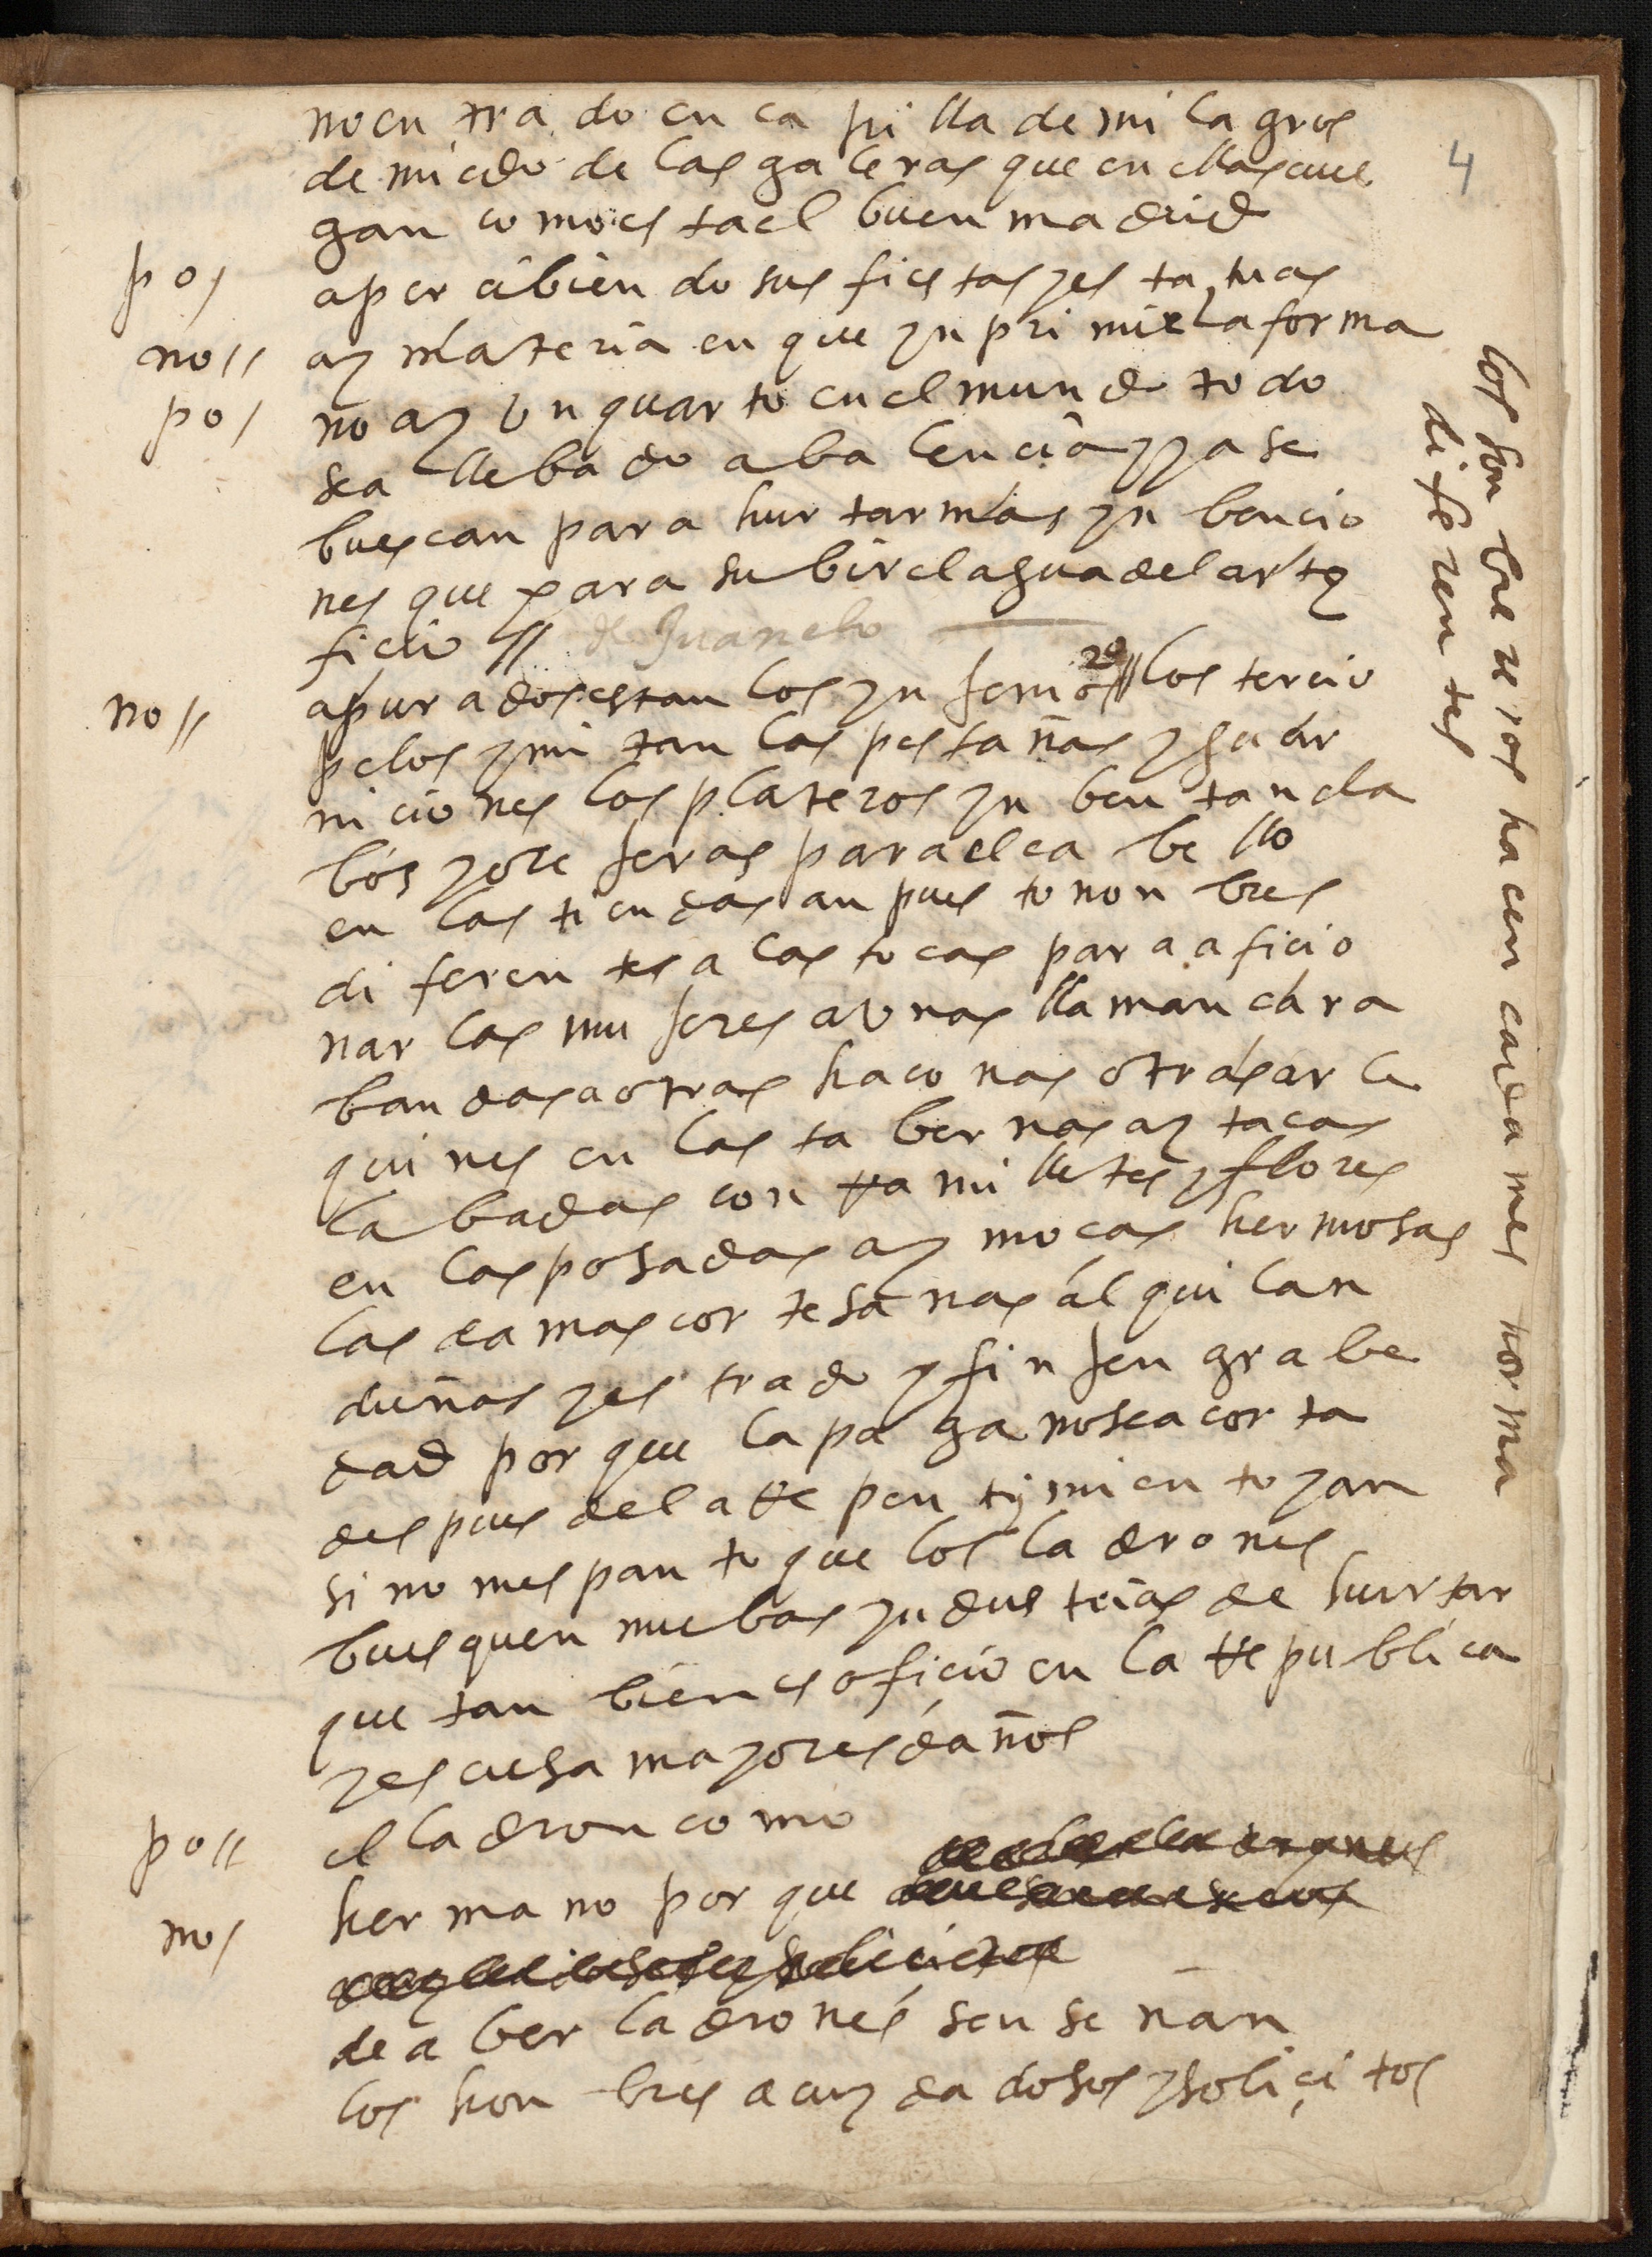 4
no en trado en ca pilla de mi lagros
de miedo de las galeras que en ellas cuel
gan como es ta el buen madrid
pos/ aper cibien do sus fies tas y es ta tuas
no// ay materia en que yn pri mir la forma
po/ no ay vn quar to en el mun do to do
sea llebado a ba lencia y ya se
buscan para hur tar mas yn bencio
nes que para su bir el agua del arty
ficio // de Juanelo
no// apur ados estan los yn jenios // los tercio
pelos ymi tan las pes tañas y guar
ni cio nes los plateros yn ben tan cla
bos y ore jeras para el ca be llo
en las tien das an pues to non bres
di feren tes a las to cas para a ficio
nar las mu jeres a vnas llaman cara
ban das a otras haco nas otras ar le
qui nes en las ta ber nas ay tacas
la badas con rra mi lletes y flores
en las posadas ay mocas hermosas
las damas cor te sa nas al qui lan
dueñas y es trado y fin jen gra be
dad por que la pa ga no sea cor ta
des pues del a rre pen ty mien to y an
si no mes pan to que los la dro nes
bus quen nuebas yn dus trias de hur tar
que tan bien es oficio en la rre pu blica
y es cusa mayores daños
po// el la dron como
no/ her ma no por que
de a ber la dro nes sen se ñan
los hon bres a cuy da dosos y soliçi tos
los son bre re ros ha cen cada mes hor ma
di fe ren tes